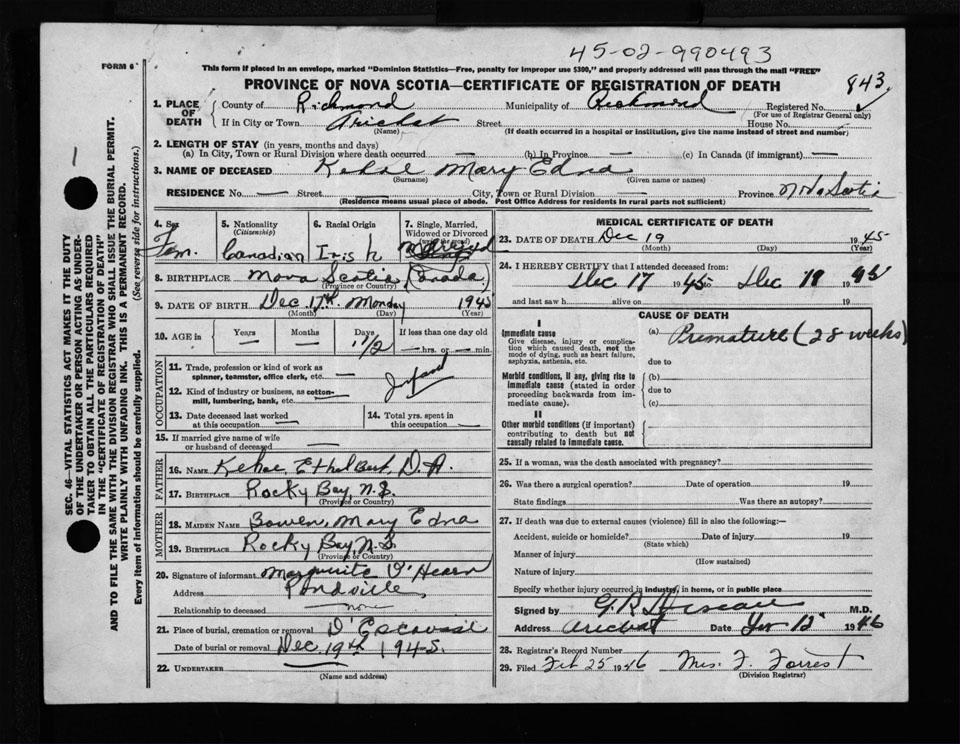 45-02-990493
FORM 6
This form if placed in an envelope, marked "Dominion Statistics—Free, penalty for improper use $300," and properly addressed will pass through the mail "FREE"
PROVINCE OF NOVA SCOTIA—CERTIFICATE OF REGISTRATION OF DEATH
843
1. PLACE OF DEATH
County of Richmond Municipality of Richmond Registered No.
(For use of Registrar General only)
If in City or Town Arichat Street House No.
(Name) (If death occurred in a hospital or institution, give the name instead of street and number)
2. LENGTH OF STAY (in years, months and days)
(a) In City, Town or Rural Division where death occurred — (b) In Province — (c) In Canada (if immigrant) —
3. NAME OF DECEASED Kehoe Mary Edna
(Surname) (Given name or names)
RESIDENCE No. — Street City, Town or Rural Division — Province Nova Scotia
(Residence means usual place of abode. Post Office Address for residents in rural parts not sufficient)
4. Sex
Fem.
5. Nationality
(Citizenship)
Canadian
6. Racial Origin
Irish
7. Single, Married, Widowed or Divorced
8. BIRTHPLACE Nova Scotia Canada
(Province or Country)
9. DATE OF BIRTH Dec. 17th Monday 1945
(Month) (Day) (Year)
10. AGE in Years — Months — Days 1 1/2 If less than one day old
— hrs. or — min.
OCCUPATION
11. Trade, profession or kind of work as spinner, teamster, office clerk, etc. —
12. Kind of industry or business, as cotton-mill, lumbering, bank, etc. —
Infant
13. Date deceased last worked at this occupation —
14. Total yrs. spent in this occupation —
15. If married give name of wife or husband of deceased —
FATHER
16. NAME Kehoe, Ethelbert, D.A.
17. BIRTHPLACE Rocky Bay, N.S.
(Province or Country)
MOTHER
18. MAIDEN NAME Bowen, Mary Edna
19. BIRTHPLACE Rocky Bay, N.S.
(Province or Country)
20. Signature of informant Marguerite O'Hearn
Address Pondville
Relationship to deceased none
21. Place of burial, cremation or removal D'Escousse
Date of burial or removal Dec. 19th 1945.
22. UNDERTAKER —
(Name and address)
MEDICAL CERTIFICATE OF DEATH
23. DATE OF DEATH Dec 19 1945
(Month) (Day) (Year)
24. I HEREBY CERTIFY that I attended deceased from:
Dec 17 1945 to Dec 19 1945
and last saw h alive on 19
CAUSE OF DEATH
I
Immediate cause
Give disease, injury or complication which caused death, not the mode of dying, such as heart failure, asphyxia, asthenia, etc.
(a) Premature (28 weeks)
due to
Morbid conditions, if any, giving rise to immediate cause (stated in order proceeding backwards from immediate cause).
(b)
due to
(c)
II
Other morbid conditions (if important) contributing to death but not causally related to immediate cause.
25. If a woman, was the death associated with pregnancy?
26. Was there a surgical operation? Date of operation 19
State findings Was there an autopsy?
27. If death was due to external causes (violence) fill in also the following:—
Accident, suicide or homicide? Date of injury 19
(State which)
Manner of injury
(How sustained)
Nature of injury
Specify whether injury occurred in industry, in home, or in public place
Signed by M.D.
Address Arichat Date 12 1946
28. Registrar's Record Number
29. Filed Feb 25 1946 Mrs. F. Forrest
(Division Registrar)
SEC. 46—VITAL STATISTICS ACT MAKES IT THE DUTY
OF THE UNDERTAKER OR PERSON ACTING AS UNDERTAKER TO OBTAIN ALL THE PARTICULARS REQUIRED
IN THE "CERTIFICATE OF REGISTRATION OF DEATH"
AND TO FILE THE SAME WITH THE DIVISION REGISTRAR WHO SHALL ISSUE THE BURIAL PERMIT.
WRITE PLAINLY WITH UNFADING INK. THIS IS A PERMANENT RECORD.
Every item of information should be carefully supplied. (See reverse side for instructions.)
1